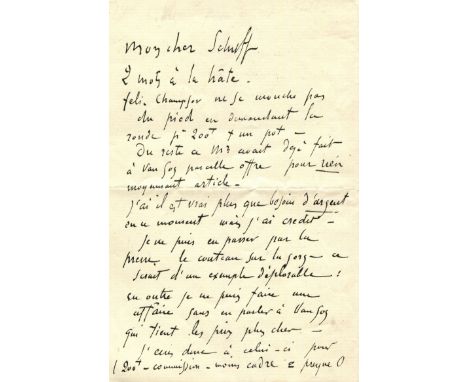 Mon cher Schuff
2 mots à la hâte.
felix Champsor ne se mouche pas
du pied en demandant la
ronde pr 200f + un pot -
Du reste ce Mr avait déjà fait
à Van Gog pareille offre pour rien
moyennant article -
J'ai il est vrai plus que besoin d'argent
en ce moment mais j'ai credit -
Je ne puis en passer par la
presse le couteau sur la gorge ce
serait d'un exemple déplorable :
en outre je ne puis faire une
affaire sans en parler à Van Gog
qui tient les prix plus cher -
J'ecris donc à celui-ci pour
200f - commission - moins cadre =